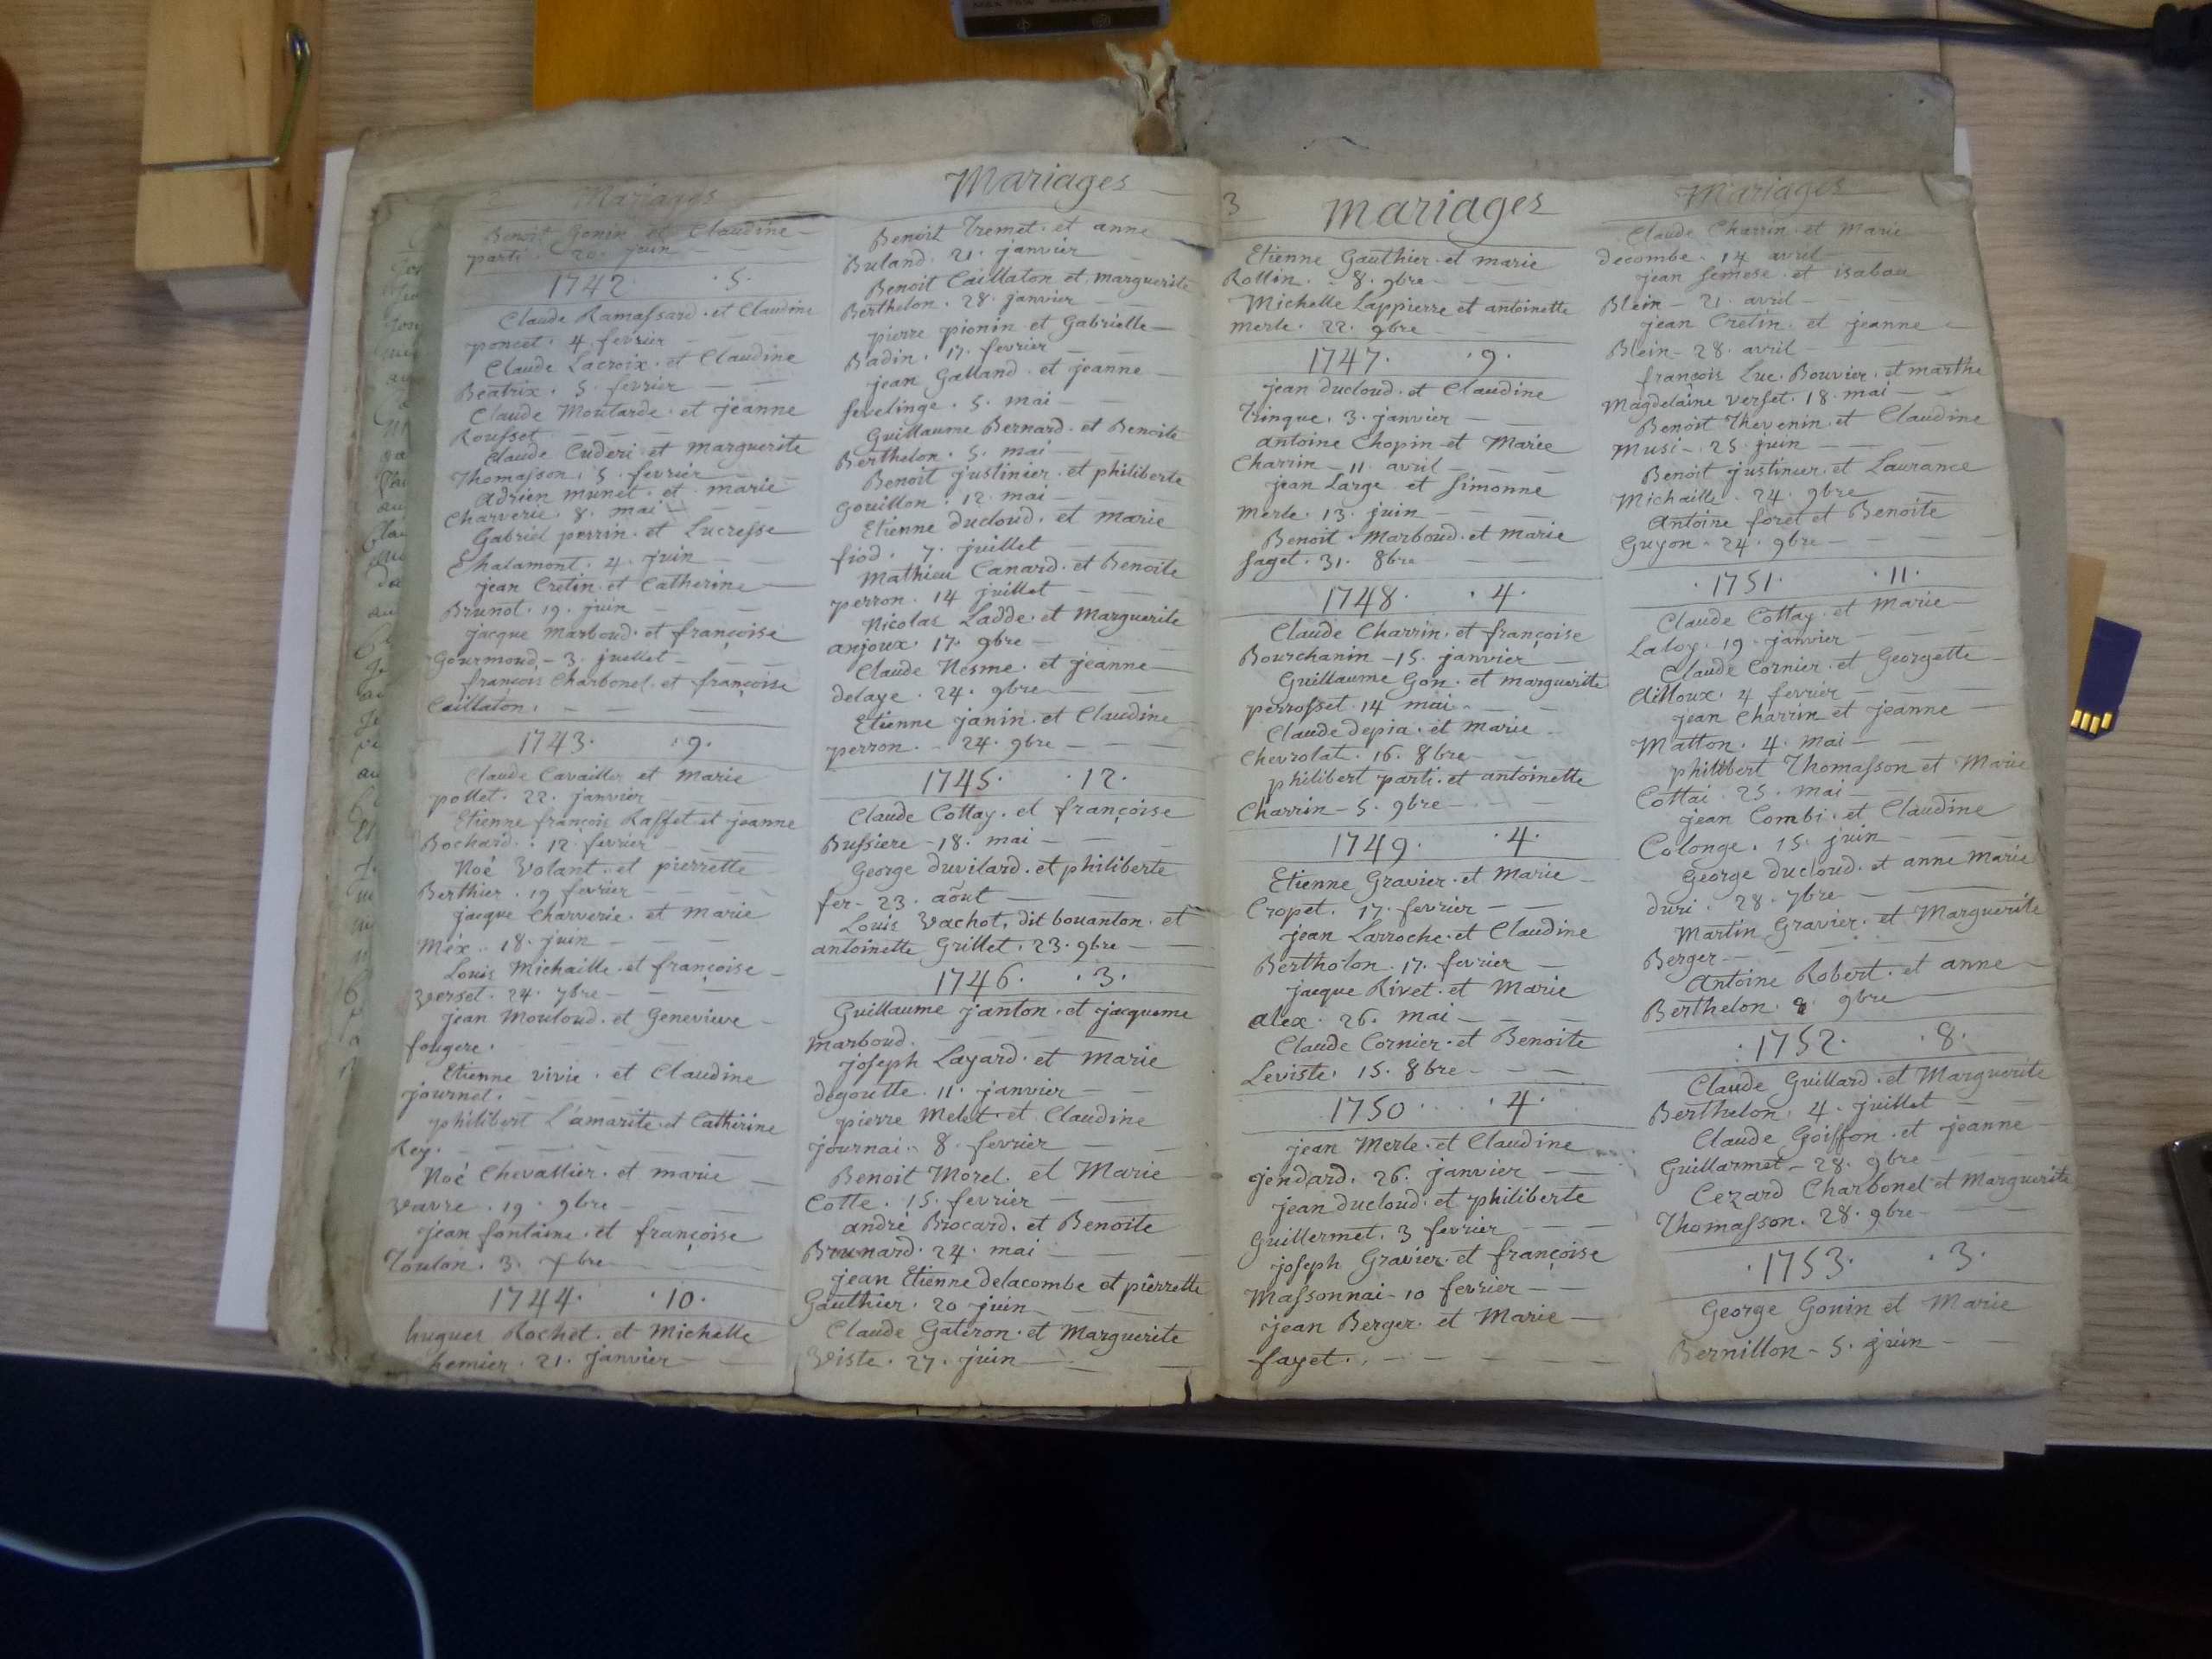 2
Mariages
Benoit Gonin et Claudine
parti. 20. juin
1742. . 5.
Claude Ramassard. et Claudine
poncet. 4. fevrier
Claude Lacroix. et Claudine
Beatrix. 5. fevrier
Claude Moutarde. et jeanne
Rousset
Claude Cuderi et marguerite
Thomasson. 5. fevrier
Adrien munet. et. marie
Charverie. 8. mai
Gabriel perrin. et Lucresse
Chalamont. 4. juin
jean Cretin. et Catherine
Brunot. 19. juin
jacque marboud. et françoise
Gourmoud. - 3. juillet -
françois Charbonel. et françoise
Caillaton.
1743. . 9.
Claude Cavailler et Marie
pollet. 22. janvier
Etienne françois Raffet et jeanne
Bochard. . 12. fevrier
Noé Volant. et pierrette
Berthier. 19 fevrier
jacque Charverie. et Marie
Méx. 18. juin
Louis Michaille. et françoise
Verset. 24. 7bre
jean Mouloud. et Genevieve
fougere.
Etienne vivie. et Claudine
journet.
philibert L'amarite. et Catherine
Rey.
Noé Chevallier. et marie
Vavre. 19. 9bre
jean fontaine. et françoise
Toulon. 3. Xbre
1744. . 10.
hugues Rochet. et Michelle
hemier. 21. janvier
Mariages
Benoit Tremet. et anne
Buland. 21. janvier
Benoit Caillaton et marguerite
Berthelon. 28. janvier
pierre pionin et Gabrielle
Badin. 17. fevrier
jean Galland. et jeanne
sevelinge. 5. mai
Guillaume Bernard. et Benoite
Berthelon. 5. mai
Benoit justinier. et philiberte
Gouillon. 12. mai
Etienne ducloud. et marie
fiod. 7. juillet
Mathieu Canard. et Benoite
perron. 14 juillet
Nicolas Ladde. et Marguerite
anjoux. 17. 9bre
Claude Nesme. et jeanne
delaye. 24. 9bre
Etienne janin. et Claudine
perron. - 24. 9bre
1745. . 12.
Claude Cottay. et françoise
Bussiere - 18. mai
George duvilard. et philiberte
fer - 23. août
Louis Vachot, dit bouanton. et
antoinette Grillet. 23. 9bre
1746. . 3.
Guillaume janton. et jacqueme
marboud.
joseph Layard. et marie
degoutte. 11. janvier
pierre Melet. et Claudine
journai. 8. fevrier
Benoit Morel. et Marie
Cotte. 15. fevrier
andré Brocard. et Benoite
Brunard. 24. mai
jean Etienne delacombe et pierrette
Gauthier. 20 juin
Claude Gateron. et Marguerite
Viste. 27. juin
3
Mariages
Etienne Gauthier. et marie
Rollin. . 8. 9bre
Michelle Lappierre et antoinette
merle. 22. 9bre
1747. . 9.
jean ducloud. et Claudine
Trinque. 3. janvier
antoine Chopin et Marie
Charrin - 11. avril
jean Large et simonne
merle. 13. juin
Benoit. Marboud. et marie
saget. 31. 8bre
1748. . 4.
Claude Charrin. et françoise
Bourchanin - 15. janvier
Guillaume Gon. et marguerite
perrosset. 14 mai
Claude depia. et marie
Chevrolat. 16. 8bre
philibert parti. et antoinette
Charrin - 5. 9bre
1749. . 4.
Etienne Gravier. et Marie
Cropet. 17. fevrier
jean Larroche. et Claudine
Bertholon. 17. fevrier
jacque Rivet. et Marie
alex. 26. mai
Claude Cornier. et Benoite
Leviste. 15. 8bre
1750. . 4.
jean Merle. et Claudine
jendard. 26. janvier
jean ducloud. et philiberte
Guillermet. 3 fevrier
joseph Gravier. et françoise
Massonnai - 10 fevrier
jean Berger. et Marie
fayet.
Mariages
Claude Charrin. et Marie
decombe. 14 avril
jean semese. et isabau
Blein - 21. avril
jean Cretin. et jeanne
Blein - 28. avril
françois Luc. Bouvier. et marthe
Magdelaine verset. 18. mai
Benoit Thevenin. et Claudine
Musi - 25. juin
Benoit justinier. et Laurance
Michaille. 24. 9bre
Antoine foret et Benoite
Guyon. 24. 9bre
. 1751. . 11.
Claude Cottay. et Marie
Laloy. 19. janvier
Claude Cornier. et Georgette
Cilloux. 4 fevrier
jean Charrin et jeanne
Matton. 4. mai
philibert Thomasson et Marie
Cottai. 25. mai
jean Combi. et Claudine
Colonge. 15. juin
George ducloud. et anne marie
duri. 28. 7bre
Martin Gravier. et Marguerite
Berger
Antoine Robert. et anne
Berthelon. 9bre
. 1752. . 8.
Claude Guillard. et Marguerite
Berthelon. 4. juillet
Claude Goiffon. et jeanne
Guillarmet - 28. 9bre
Cezard Charbonel et Marguerite
Thomasson. 28. 9bre
. 1753. . 3.
George Gonin et Marie
Bernillon - 5. juin